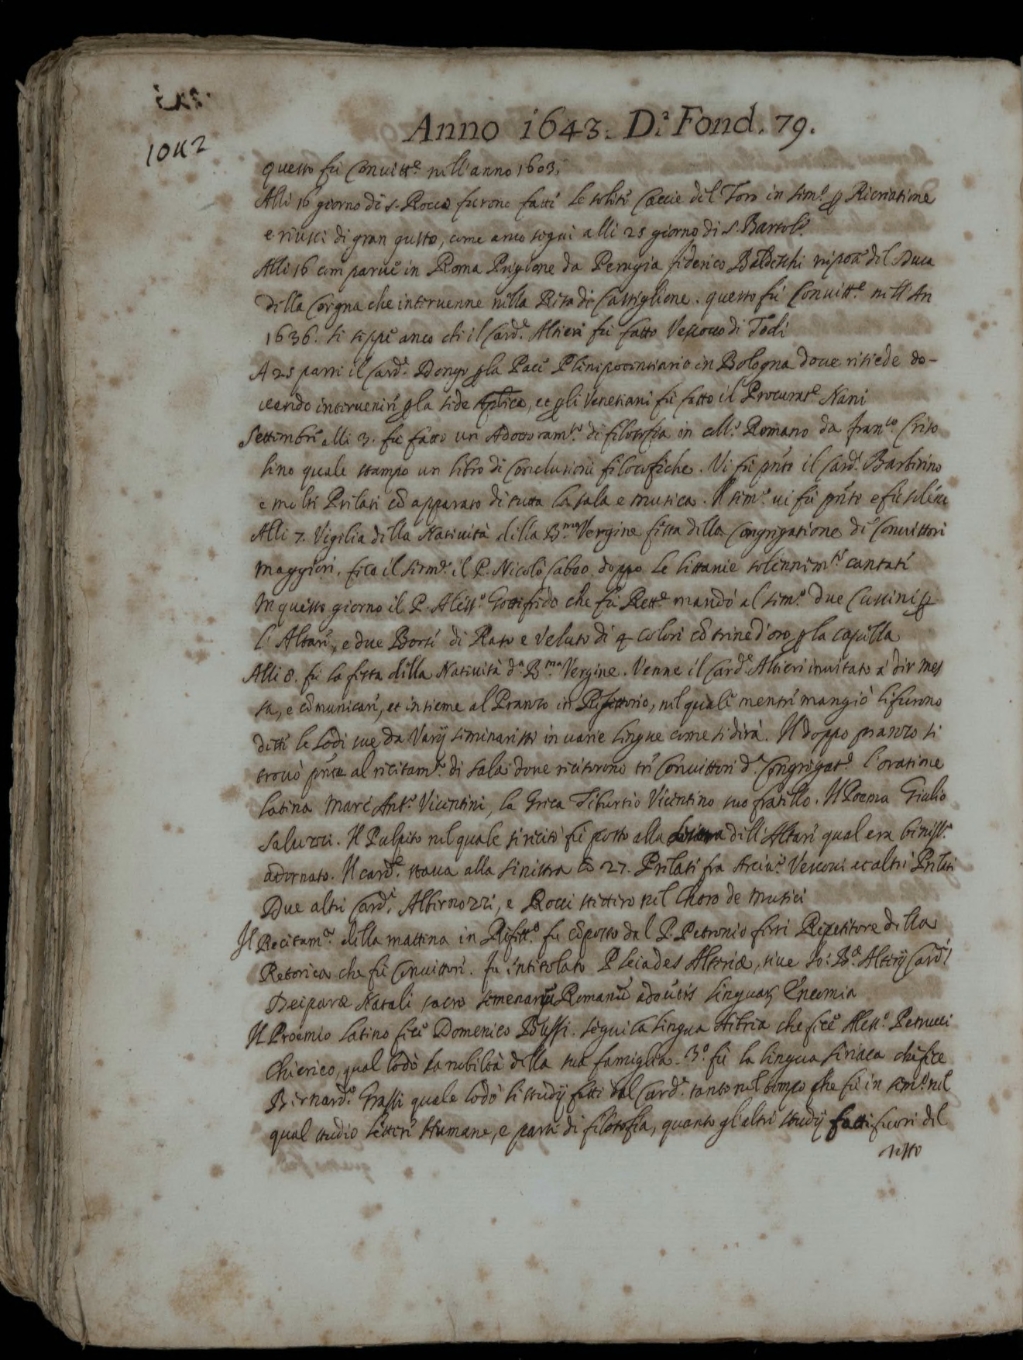 1042
Anno 1643. Di Fond. 79.
questo fù Convitt.e nell'anno 1603.
Alli 16 giorno di S. Rocco furono fatti le solite Caccie del Toro in Sem.o p Ricreatione
e riuscì di gran gusto, come anco seguì alli 25 giorno di S. Bartol.o
Alli 16 comparue in Roma Prigione da Perugia federico Baldeschi nipote del Duca
della Corgna che interuenne nella Resa di Castiglione. questo fù Convitt.e nell'An
1636. si seppe anco che il Card. Altieri fù fatto Vescouo di Todi
A 25 partì il Card. Dongo p la Pace Plenipotentiario in Bologna doue risiede do-
uendo interuenire p la sede Aplica, et p gli Venetiani fù fatto il Procurat.e Nani
Settembre alli 3. fù fatto un Adottoram.to di filosofia in Coll.o Romano da Fran.co Criso
lino quale stampò un libro di Conclusioni filosofiche. Vi fù pnte il Card. Barberino
e molti Prelati cō apparato di tutta la sala e musica. Il Sem.o ui fù pnte e fù solēne
Alli 7. Vigilia della Natiuità della B.ma Vergine festa della Congregatione di Conuittori
maggiori, fece il Serm.e il P. Nicolò doppo le littanie solennim.te cantate
In questo giorno il P. Aless.o Gottifredo che fù Rett.e mandò al Sem.o due Cuscini p
l'Altare, e due Borse di Raso e Veluto di 4 colori cō trine d'oro p la capella
Alli 8. fù la festa della Natiuità d.a B.ma Vergine. Venne il Card. Altieri inuitato à dir mes
sa, e cōmunicare, et insieme al Pranzo in Refettorio, nel quale mentre mangiò li furono
dette le lodi sue da Varij seminaristi in uarie lingue come si dirà. Il doppo pranzo si
trouò pnte al recitam.to di sala doue recitorono trè Conuittori d.a Congregat.e l'oratione
latina Marc'Ant.o Vicentini, la Greca Tiburtio Vicentino suo fratello. Il Poema Giulio
Saluzzi. Il Pulpito nel quale si recitò fù posto alla dell'Altare qual era beniss.o
adornato. Il Card. staua alla sinistra cō 27. Prelati fra Arciu.i Vescoui et altri Prelati
Due altri Card.i Albernozzi, e Rocci stettero nel Choro de Musici
Il Recitam.to della mattina in Refett.o fù cōposto dal P. Petronio ferri Repetitore della
Retorica che fù Conuittore. fù intitolato Pleiades Alteriæ, siue Alterij Card.
Deiparæ Natali sacro Romanū Linguar. Encomia
Il Proemio latino fece Domenico Seguì la lingua Hebrea che fece Aless.o Petrucci
Chierico, qual lodò la nobiltà della sua famiglia. 3.o fù la lingua siriaca che fece
Bernard.o Grassi quale lodò li studij fatti dal Card. tanto nel tempo che fù in Sem.o nel
qual studiò lettere Humane, e parte di filosofia, quanto gl'altri studij fatti fuori del
resto